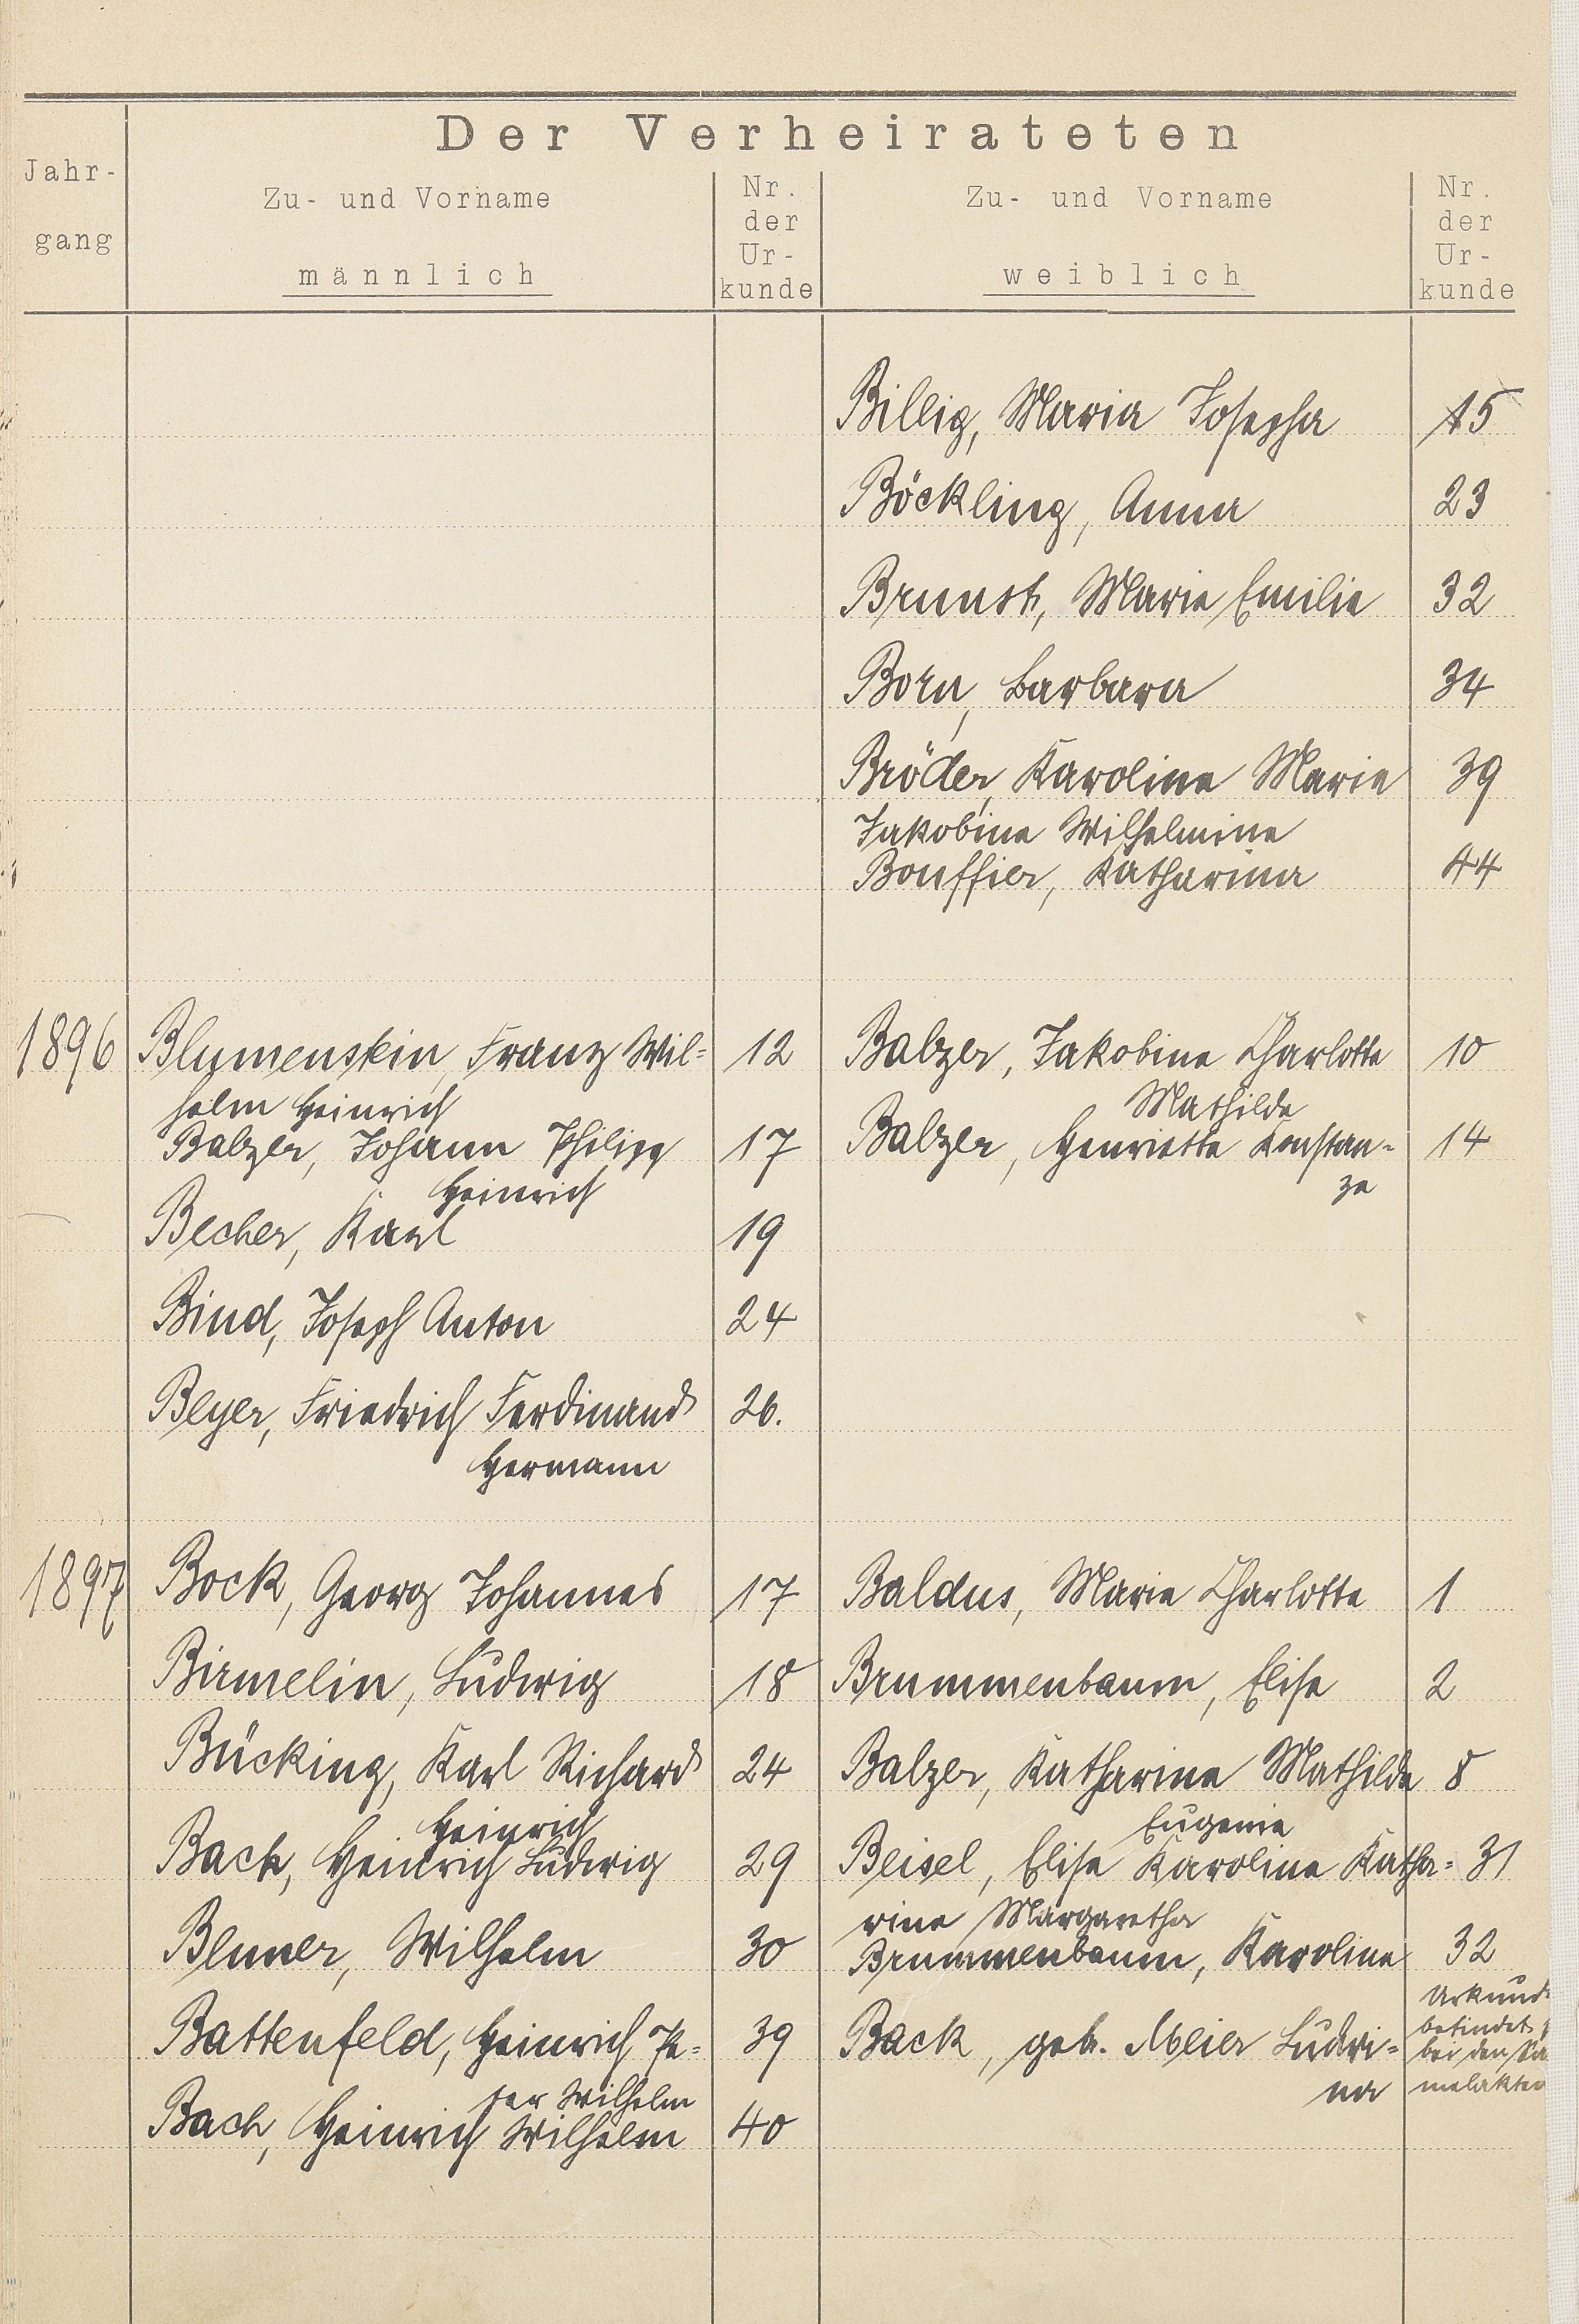 Der Verheirateten
Jahr-
gang
Zu- und Vorname
männlich
Nr.
der
Ur-
kunde
Zu- und Vorname
weiblich
Nr.
der
Ur-
kunde
Billig, Maria Josepha 15
Böckling, Anna 23
Brunst, Marie Emilie 32
Born, Barbara 34
Bröder, Karoline Marie 39
Jakobine Wilhelmine
Bouffier, Katharina 44
1896 Blumenstein, Franz Wil= 12 Balzer, Jakobine Charlotte 10
helm Heinrich Mathilde
Balzer, Johann Philipp 17 Balzer, Henriette Konstan- 14
Heinrich ze
Becher, Karl 19
Bind, Joseph Anton 24
Beyer, Friedrich Ferdinand 26.
Hermann
1897 Bock, Georg Johannes 17 Baldus, Marie Charlotte 1
Birmelin, Ludwig 18 Brummenbaum, Elise 2
Bücking, Karl Richard 24 Balzer, Katharine Mathilde 8
Heinrich Eugenie
Back, Heinrich Ludwig 29 Beisel, Elise Karoline Katha= 31
rine Margaretha
Wilhelm 30 Brummenbaum, Karoline 32
Battenfeld, Heinrich Pe= 39 Back, geb. Meier Ludwi= na
ter Wilhelm
Urkund
befindet
bei den
Bach, Heinrich Wilhelm 40